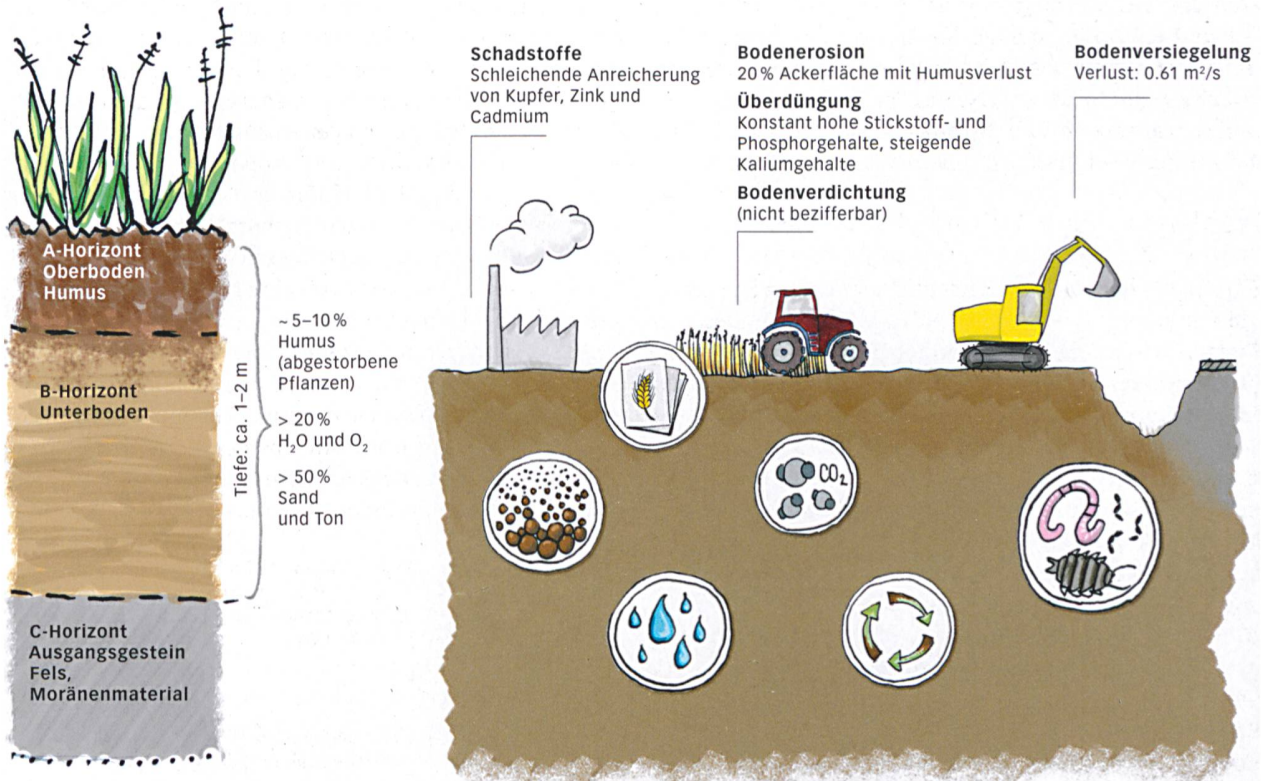 A-Horizont
Oberboden
Humus
B-Horizont
Unterboden
C-Horizont
Ausgangsgestein
Fels,
Moränenmaterial
Tiefe: ca. 1–2 m
~ 5–10 %
Humus
(abgestorbene
Pflanzen)
> 20 %
H₂O und O₂
> 50 %
Sand
und Ton
Schadstoffe
Schleichende Anreicherung
von Kupfer, Zink und
Cadmium
Bodenerosion
20 % Ackerfläche mit Humusverlust
Überdüngung
Konstant hohe Stickstoff- und
Phosphorgehalte, steigende
Kaliumgehalte
Bodenverdichtung
(nicht bezifferbar)
Bodenversiegelung
Verlust: 0.61 m²/s
CO₂